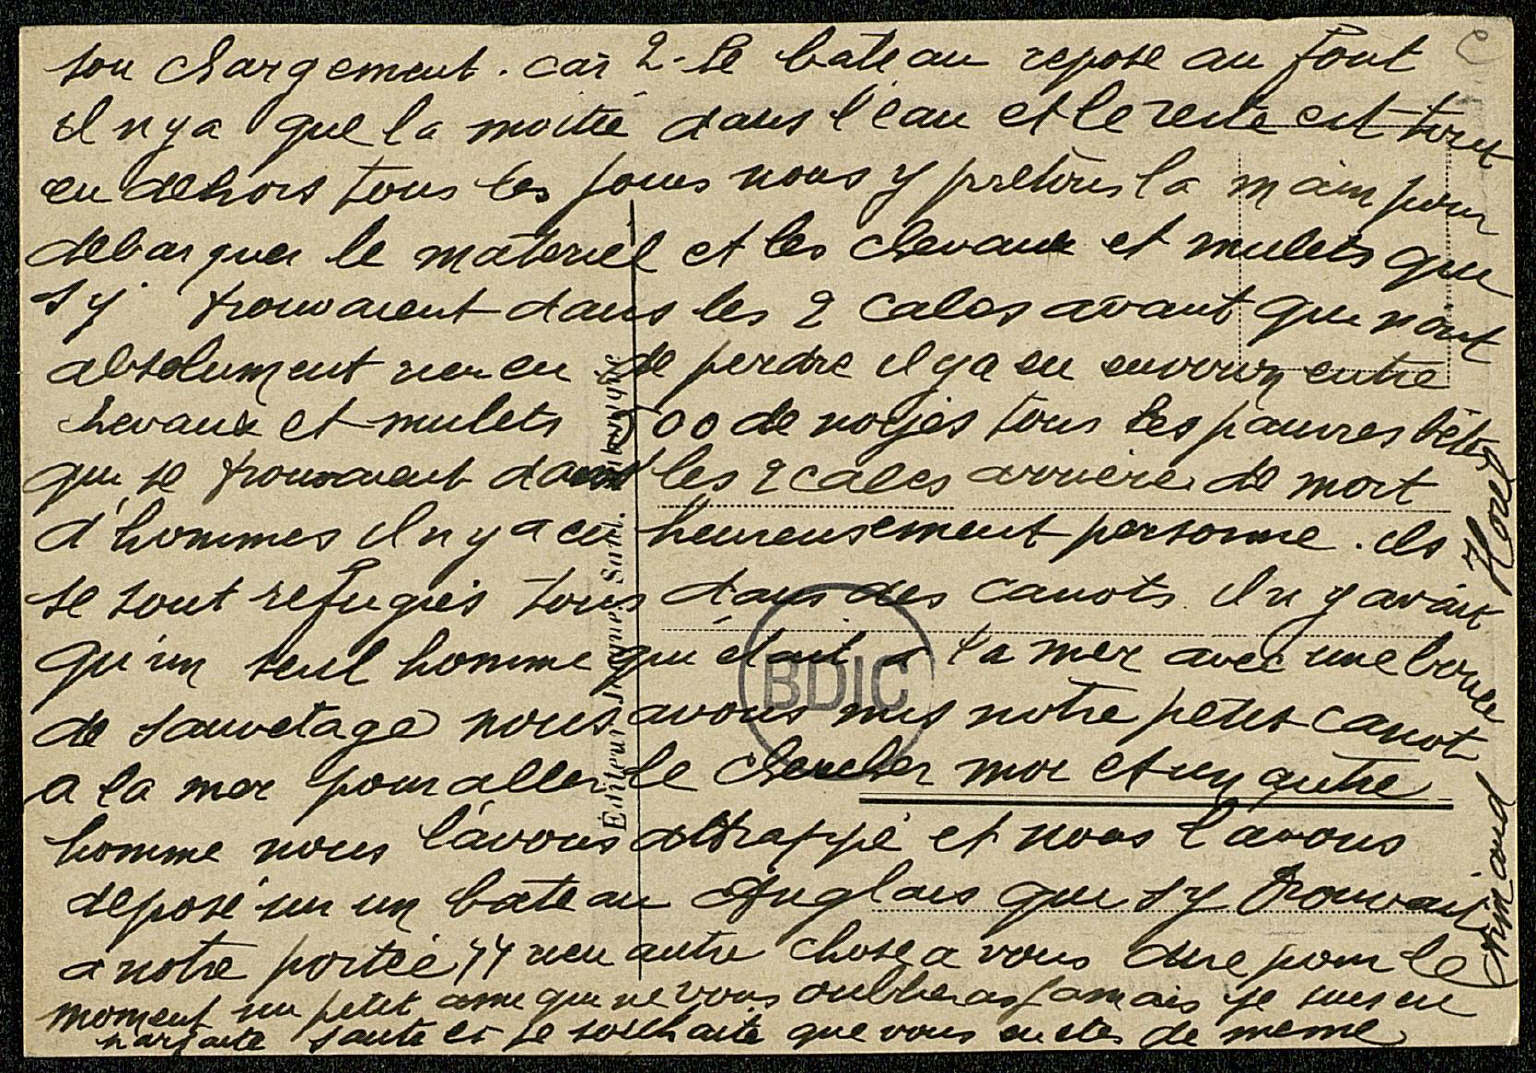 son chargement. car 2. le bateau repose au fout
il n y a que la moitié dans l'eau et le reste est tout
en dehors tous les jours nous y pretons la main pour
debarquer le materiel et les chevaux et mulets que
s y trouvaient dans les 2 cales avant que nont
absolument rien eu de perdre il y a eu environ entre
chevaux et mulets 500 de noyés tous les pauvres bêtes
qui se trouvaient dans les 2 cales arrière de mort
d'hommes il n y a eu heureusement personne. ils
se sont refugiés tous dans des canots. il n y avait
qu'un seul homme qui était a la mer avec une bouee
de sauvetage nous avons mis notre petit canot
a la mer pour aller le chercher moi et un autre
homme nous l'avons attrappé et nous l'avons
deposé sur un bateau Anglais que s y trouvait
a notre portée rien autre chose a vous dire pour le
moment un petit ami que ne vous oubliera jamais je suis en
parfaite santé et je souhaite que vous en etes de meme
Armand Horel
Éditeur
BDIC